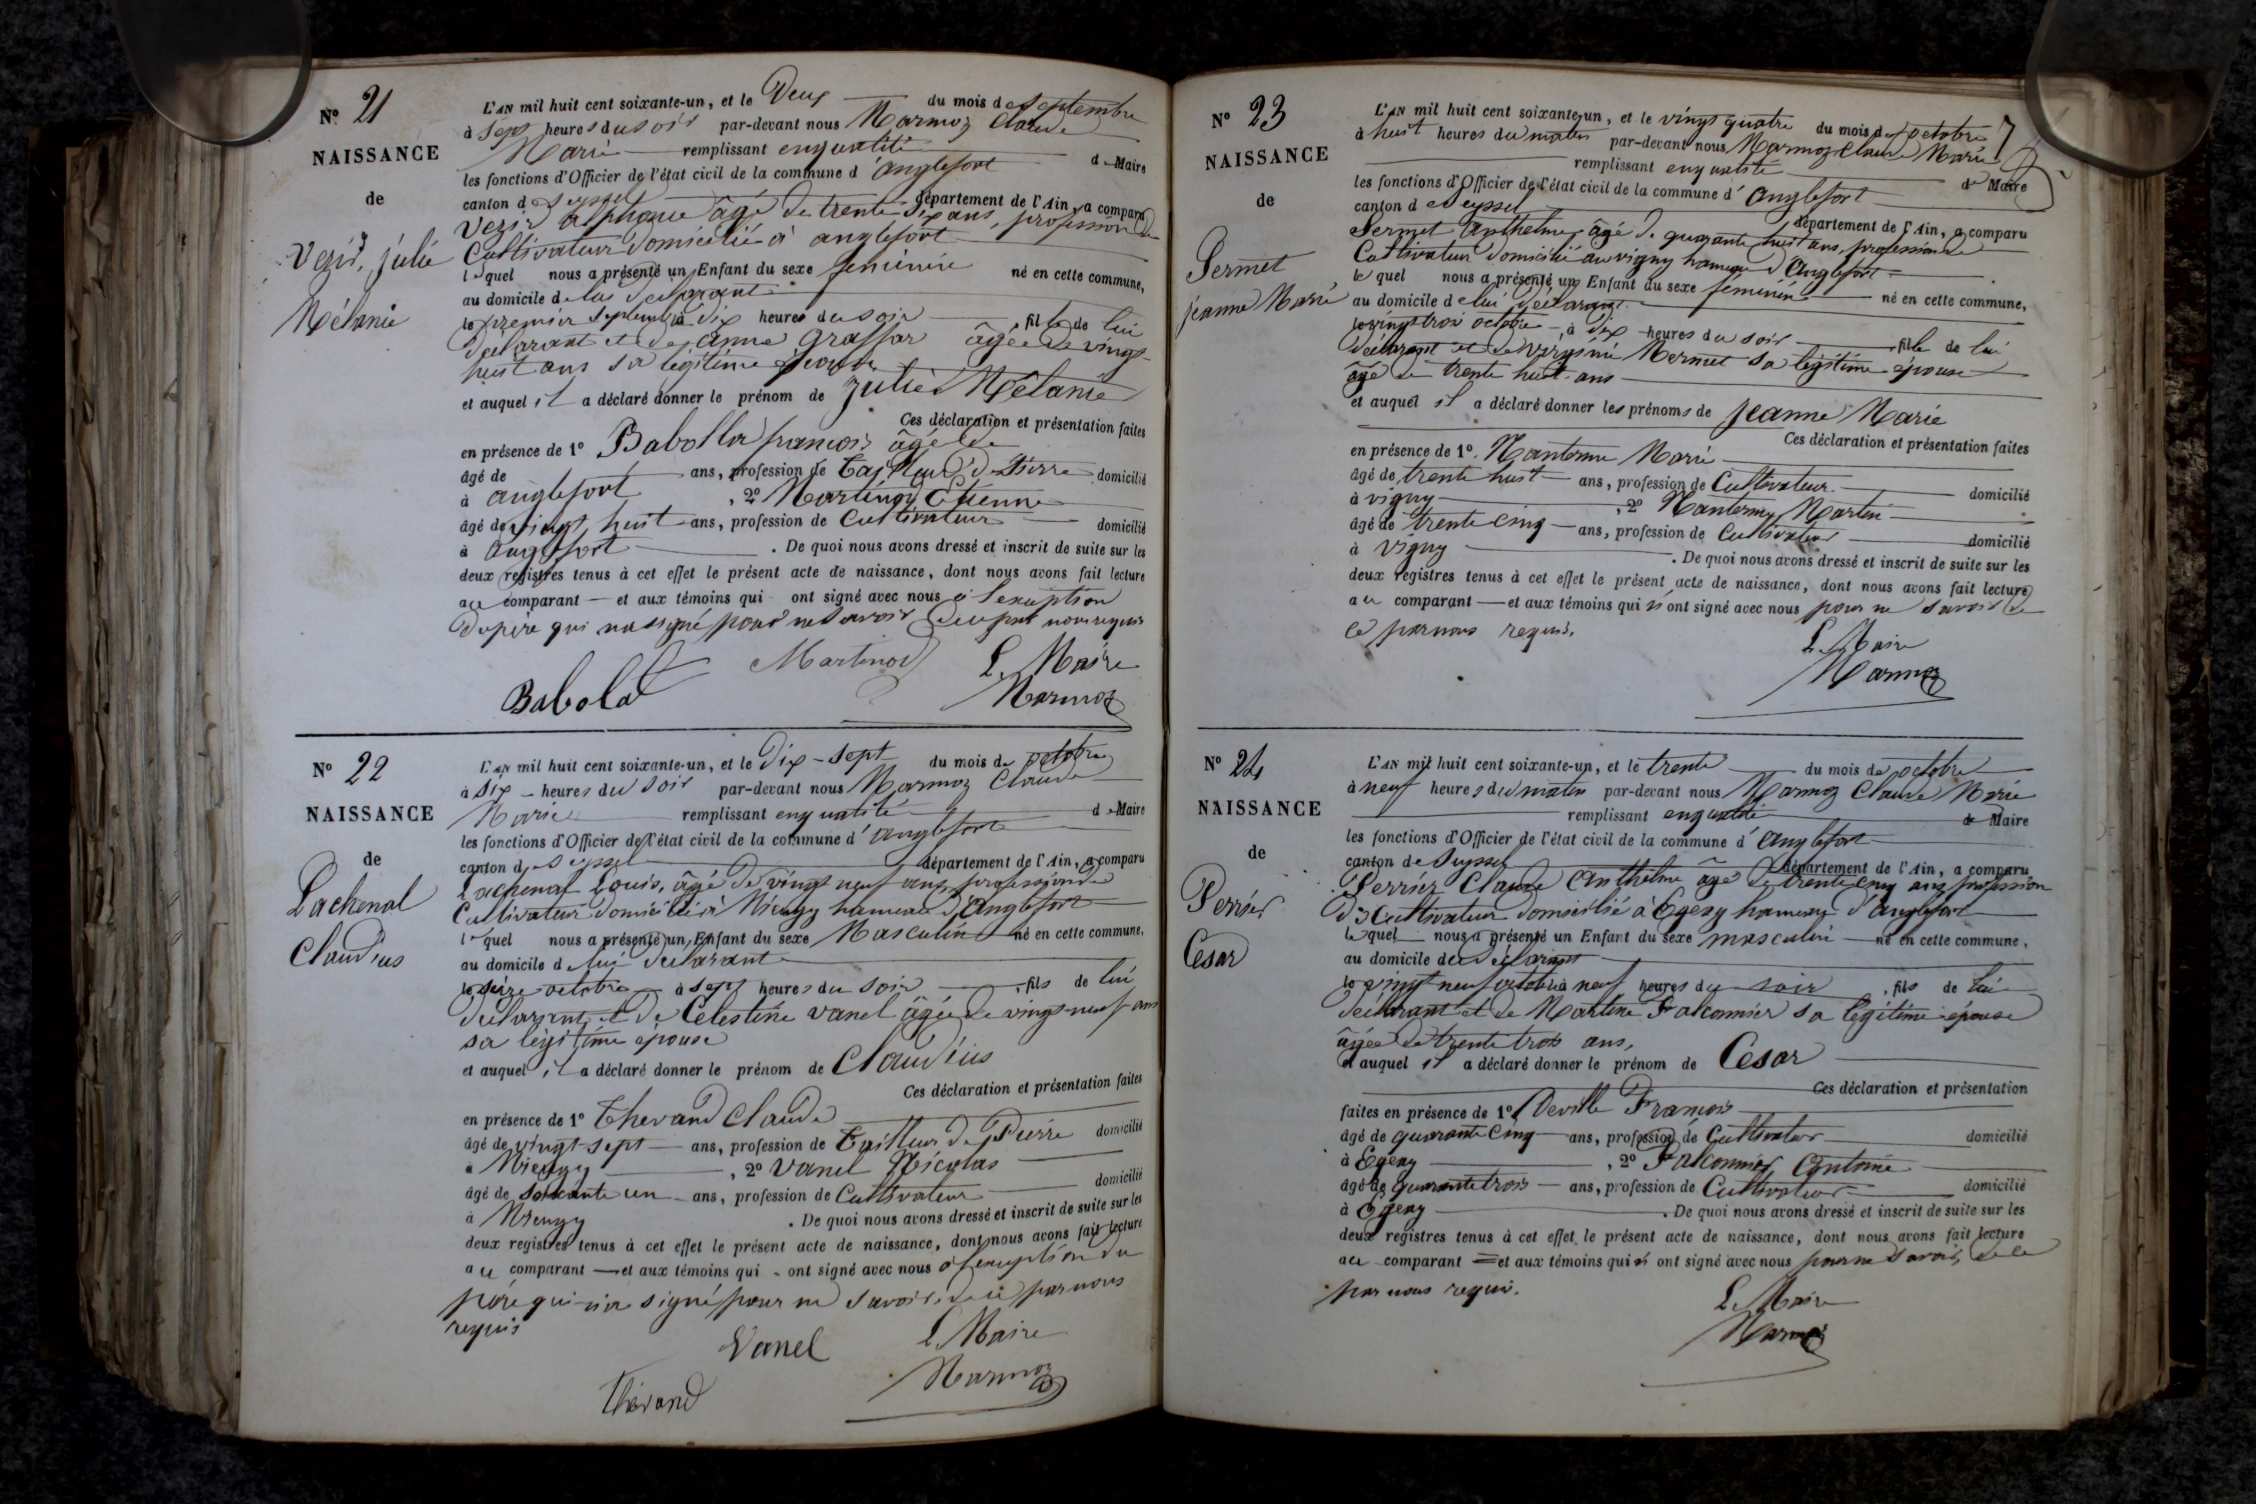 Nº 21
NAISSANCE
de
Vezir, julie
Mélanie
L'AN mil huit cent soixante-un, et le Deux du mois de Septembre
à sept heures du soir par-devant nous Marmoz Claude
Marie remplissant en qualité de Maire
les fonctions d'Officier de l'état civil de la commune d'anglefort
canton de Seyssel département de l'Ain, a comparu
Vezir alphonse âgé de trente six ans, profession de
Cultivateur domicilié à anglefort
lequel nous a présenté un Enfant du sexe feminin né en cette commune,
au domicile de lui déclarant
le premier Septembre à dix heures du soir, fille de lui
déclarant et de anne graffar âgée de vingt
huit ans sa légitime épouse
et auquel il a déclaré donner le prénom de julie Mélanie
Ces déclaration et présentation faites
en présence de 1º Babolla françois âgé de
âgé de ans, profession de tailleur de Pierre domicilié
à anglefort, 2º Martinod Etienne
âgé de vingt huit ans, profession de Cultivateur domicilié
à anglefort. De quoi nous avons dressé et inscrit de suite sur les
deux registres tenus à cet effet le présent acte de naissance, dont nous avons fait lecture
au comparant et aux témoins qui ont signé avec nous à l'exception
du père qui n'a signé pour ne savoir de ce par nous requis
Babolat Martinod Le Maire
Marmoz
Nº 22
NAISSANCE
de
Lachenal
Claudius
L'AN mil huit cent soixante-un, et le Dix-sept du mois de octobre
à six heures du soir par-devant nous Marmoz Claude
Marie remplissant en qualité de Maire
les fonctions d'Officier de l'état civil de la commune d'anglefort
canton de Seyssel département de l'Ain, a comparu
Lachenal Louis, âgé de vingt neuf ans, profession de
Cultivateur domicilié à Mieugy hameau d'Anglefort
lequel nous a présenté un Enfant du sexe Masculin né en cette commune,
au domicile de lui déclarant
le seize octobre à sept heures du soir, fils de lui
déclarant et de Célestine vanel âgée de vingt-neuf ans
sa légitime épouse
et auquel il a déclaré donner le prénom de Claudius
Ces déclaration et présentation faites
en présence de 1º Thevand Claude
âgé de vingt-sept ans, profession de tailleur de Pierre domicilié
à Mieugy, 2º Vanel Nicolas
âgé de soixante un ans, profession de Cultivateur domicilié
à Mieugy. De quoi nous avons dressé et inscrit de suite sur les
deux registres tenus à cet effet le présent acte de naissance, dont nous avons fait lecture
au comparant et aux témoins qui ont signé avec nous à l'exception du
père qui n'a signé pour ne savoir, de ce par nous
requis
Vanel Le Maire
Thevand Marmoz
Nº 23
NAISSANCE
de
Sermet
jeanne Marie
L'AN mil huit cent soixante-un, et le vingt quatre du mois de octobre
à huit heures du matin par-devant nous Marmoz Claude Marie
remplissant en qualité de Maire
les fonctions d'Officier de l'état civil de la commune d'Anglefort
canton de Seyssel département de l'Ain, a comparu
Sermet Anthelme âgé de quarante huit ans, profession de
Cultivateur domicilié au vigny hameau d'Anglefort
lequel nous a présenté un Enfant du sexe feminin né en cette commune,
au domicile de lui déclarant
le vingt trois octobre à dix heures du soir, fille de lui
déclarant et de virginie Mermet sa légitime épouse
âgé de trente huit ans
et auquel il a déclaré donner les prénoms de jeanne Marie
Ces déclaration et présentation faites
en présence de 1º. Nanterme Marie
âgé de trente huit ans, profession de Cultivateur domicilié
à vigny, 2º Nantermy Martin
âgé de trente cinq ans, profession de Cultivateur domicilié
à vigny. De quoi nous avons dressé et inscrit de suite sur les
deux registres tenus à cet effet le présent acte de naissance, dont nous avons fait lecture
au comparant et aux témoins qui n'ont signé avec nous pour ne savoir de
ce par nous requis.
Le Maire
Marmoz
Nº 24
NAISSANCE
de
Perrier
César
L'AN mil huit cent soixante-un, et le trente du mois de octobre
à neuf heures du matin par-devant nous Marmoz Claude Marie
remplissant en qualité de Maire
les fonctions d'Officier de l'état civil de la commune d'Anglefort
canton de Seyssel département de l'Ain, a comparu
Perrier Claude Anthelme âgé de trente cinq ans profession
de Cultivateur domicilié à Egezy hameau d'anglefort
lequel nous a présenté un Enfant du sexe masculin né en cette commune,
au domicile du déclarant
le vingt neuf octobre à neuf heures du soir, fils de lui
déclarant et de Martine Falconnier sa légitime épouse
âgée de trente trois ans,
et auquel il a déclaré donner le prénom de César
Ces déclaration et présentation
faites en présence de 1º Deville François
âgé de quarante cinq ans, profession de Cultivateur domicilié
à Egezy, 2º Falconnier Antoine
âgé de quarante trois ans, profession de Cultivateur domicilié
à Egezy. De quoi nous avons dressé et inscrit de suite sur les
deux registres tenus à cet effet le présent acte de naissance, dont nous avons fait lecture
au comparant et aux témoins qui n'ont signé avec nous pour ne savoir, de ce
par nous requis.
Le Maire
Marmoz